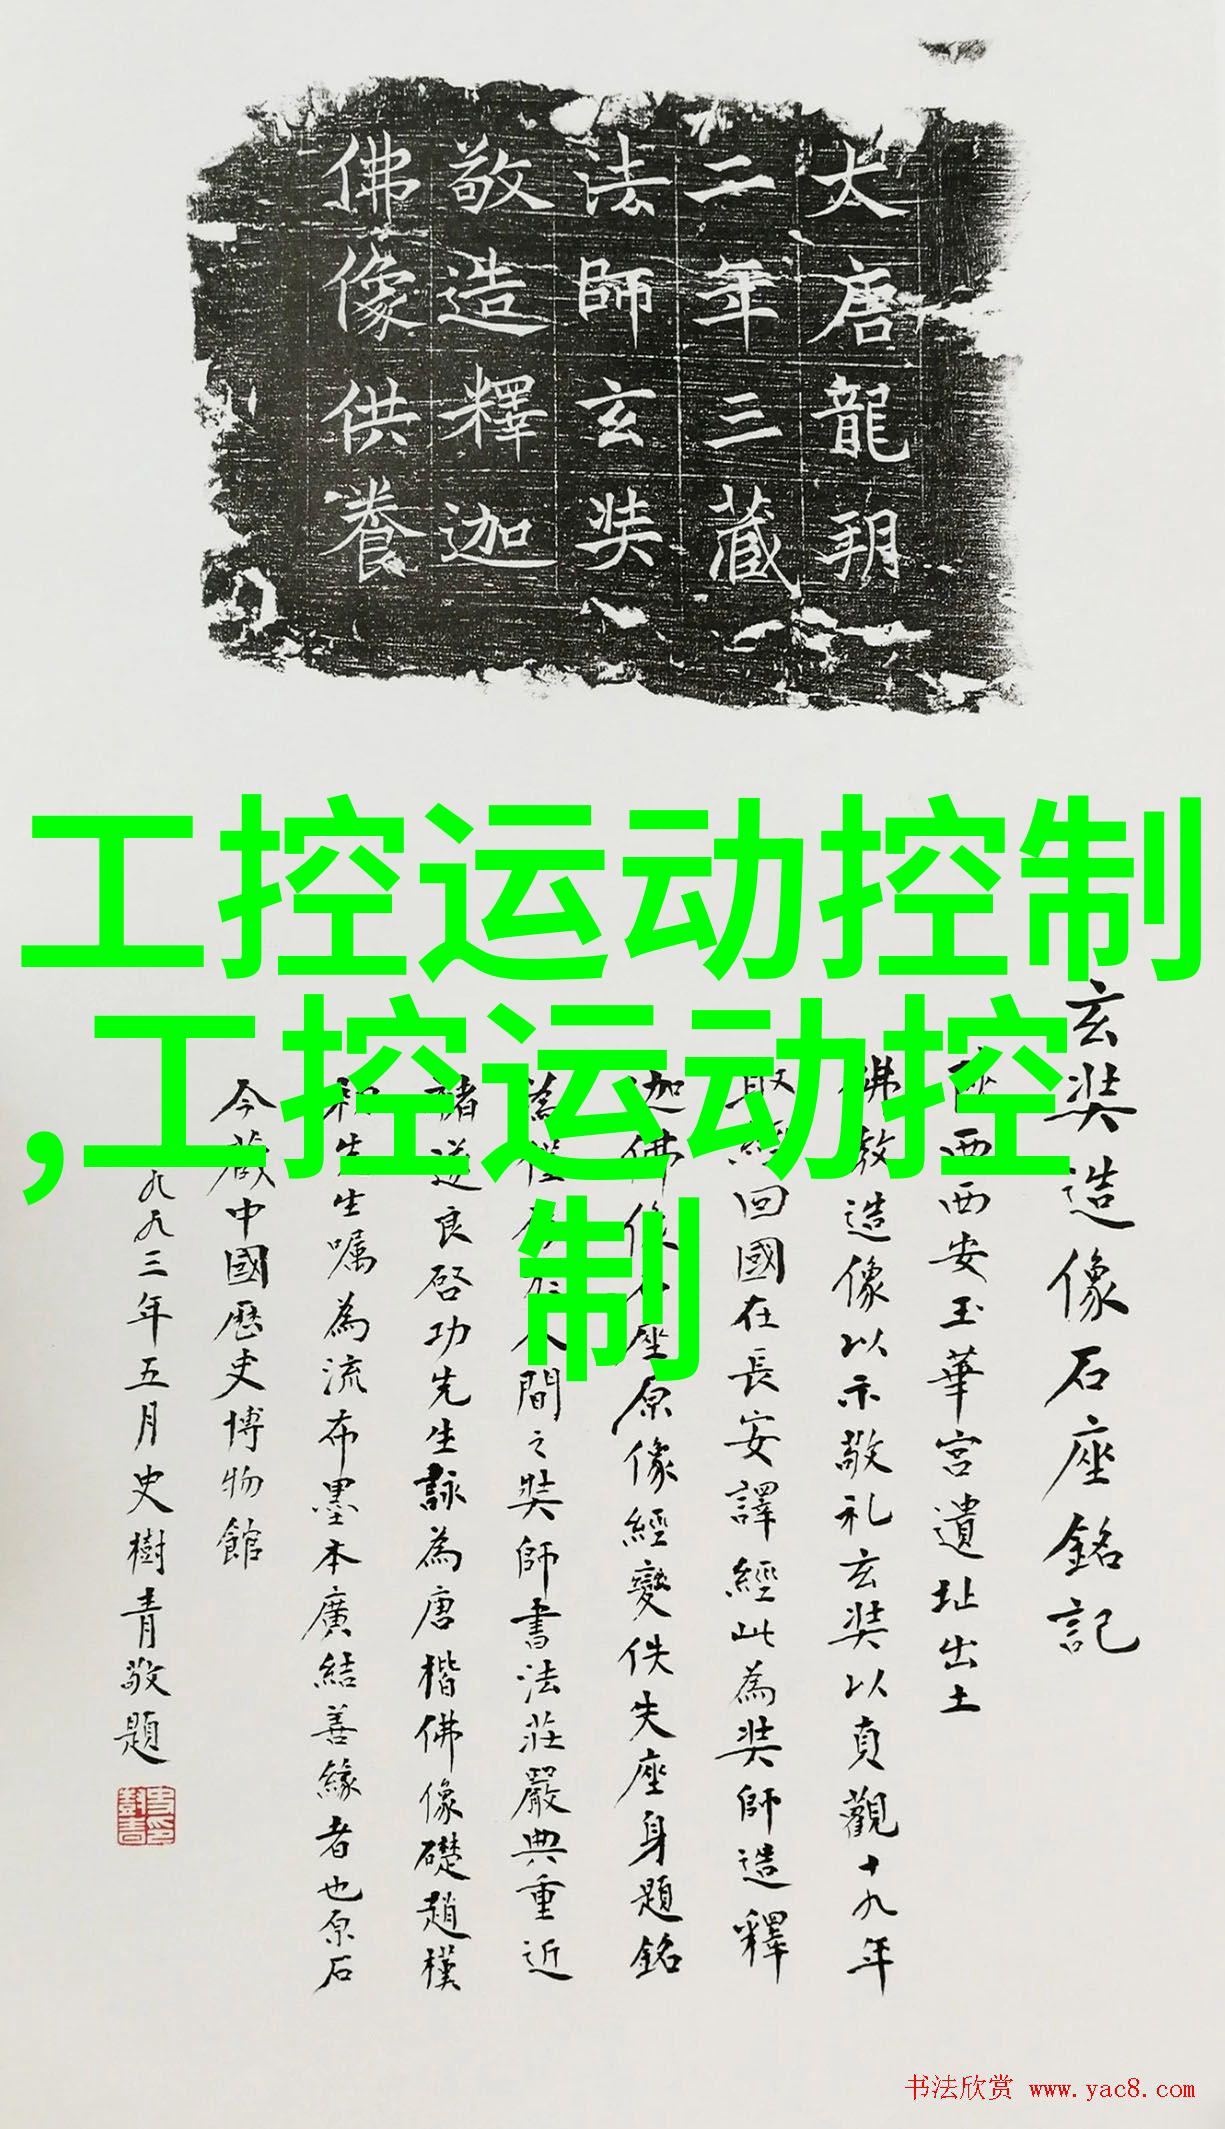 大唐龍朔
二年三藏
法師玄奘
敬造釋迦
佛像供養
工控运动控制
,工控运动控
制
玄奘造像石座銘記
西西安玉華宮遺址出土
佛教造像以示敬礼玄奘以貞觀十九年
取經回國在長安譯經此為奘師造釋
迦佛像 座原像經變佚失座身題銘
人間之奘師書法莊嚴典重近
諸遂良启功先生詠為唐楷佛像礎趙樸
初先生嘱為流布墨本廣結善緣者也原石
今藏中國歷史博物館
九九三年五月史樹青敬題
书法欣赏 www.yac8.com